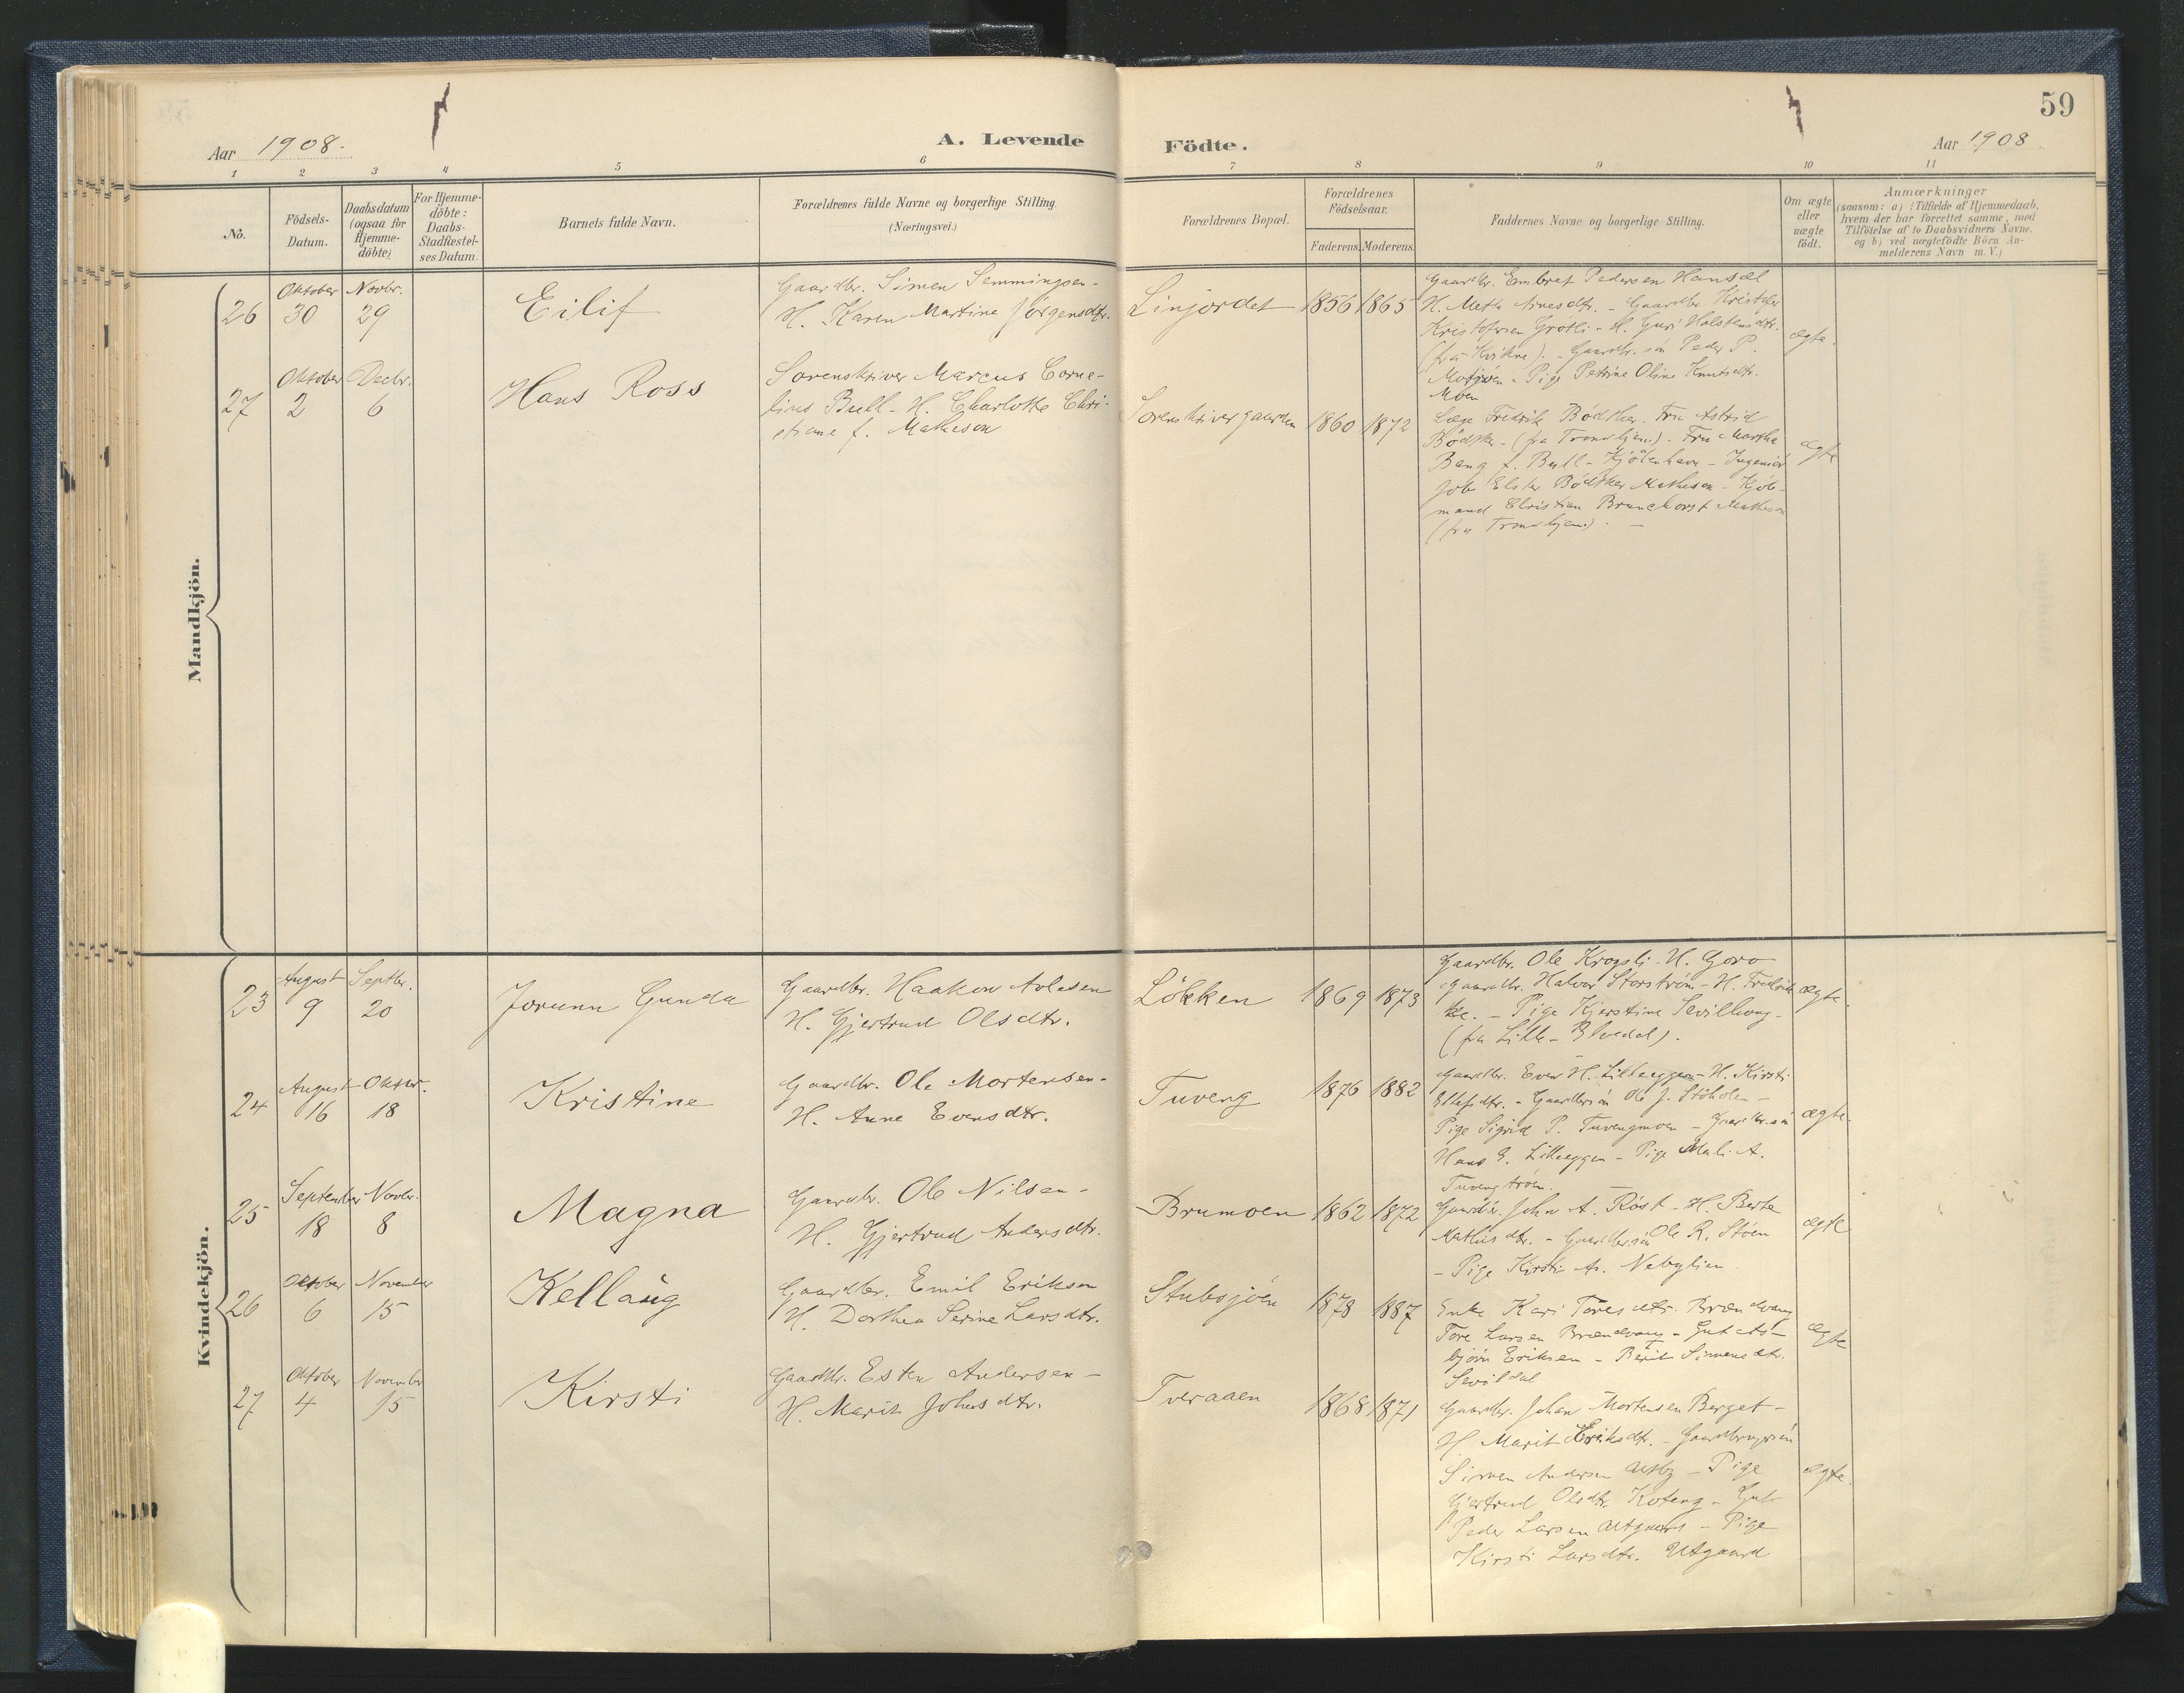 59
Aar 1908.
A. Levende Födte.
Aar 1908
1 2 3 4 5 6 7 8 9 10 11
No.
Födsels-Datum.
Daabsdatum (ogsaa for Hjemme-döbte)
For Hjemme-döbte: Daabs-Stadfæstel-ses Datum.
Barnets fulde Navn.
Forældrenes fulde Navne og borgerlige Stilling.
(Næringsvei.)
Forældrenes Bopæl.
Forældrenes Födselsaar.
Faderens. Moderens.
Faddernes Navne og borgerlige Stilling.
Om ægte eller uægte födt.
Anmærkninger
(saasom: a) i Tilfælde af Hjemmedaab,
hvem der har forrettet samme, med
Tilföielse af to Daabsvidners Navne,
og b) ved uægtefödte Börn An-
melderens Navn m.V.)
Mandkjön.
26
Oktober 30
Novbr. 29
Eilif
Gaardbr. Simen Semmingsen -
H. Karen Martine Jörgensdtr.
Linjordet
1856 1865
Gaardbr. Embret Pedersen Hansæl
H. Mette Arnesdtr. - Gaardbr. Kristofer
Kristofersen Grötli - H. Guri Halstensdtr.
(fra Kvikne). - Gaardbr. sön Peder P.
Motjöen - Pige Petrine Oline Knutsdtr.
Moen
ægte.
27
Oktober 2
Decbr. 6
Hans Ross
Sorenskriver Marcus Corne-
lius Bull - H. Charlotte Chri-
stiane f. Matheson
Sorenskrivergaarden
1860 1872
Læge Fredrik Bödtker - Fru Astrid
Bödtker - (fra Trondhjem) - Fru Marthe
Bang f. Bull - Kjöbenhavn - Ingeniör
Job Elster Bödtker Matheson - Kjöb-
mand Christian Brunchorst Matheson
(fra Trondhjem). -
ægte
Kvindekjön.
23
August 9
Septbr. 20
Jorunn Gunda
Gaardbr. Haakon Avlesen
H. Gjertrud Olsdtr.
Lökken
1869 1873
Gaardbr. Ole Krogsli - H. Goro
Gaardbr. Halvor Storström - H. Fredrik
ke. - Pige Kjerstine Sevilhaug -
(fra Lille-Elvedal).
ægte.
24
August 16
Oktbr. 18
Kristine
Gaardbr. Ole Mortensen -
H. Anne Evensdtr.
Tuveng
1876 1882
Gaardbr. Even H. Lilleeggen - H. Kirsti
Ellefsdtr. - Gaardbrsön Ole J. Stöholen -
Pige Sigrid P. Tuvengmoen - Gaardbr. sön
Hans E. Lilleeggen - Pige Mali A.
Tuvengström.
ægte.
25
September 18
Novbr. 8
Magna
Gaardbr. Ole Nilsen -
H. Gjertrud Andersdtr.
Brumoen
1862 1872
Gaardbr. John A. Röst - H. Berte
Mathisdtr. - Gaardbr.sön Ole R. Stöen
- Pige Kirsti As. Nebylien
ægte
26
Oktober 6
November 15
Kellaug
Gaardbr. Emil Eriksen
H. Dorthea Serine Larsdtr.
Stubsjöen
1878 1887
Enke Kari Toresdtr. Brændvang
Tore Larsen Brændvang - Gut As-
björn Eriksen - Berit Simensdtr.
Sevildal
ægte
27
Oktober 4
November 15
Kirsti
Gaardbr. Esten Andersen -
H. Marit Johnsdtr.
Tveraaen
1868 1871
Gaardbr. Johan Mortensen Berget -
H. Marit Eriksdtr. - Gaardbrugersön
Simen Andersen Utby - Pige
Gjertrud Olsdtr. Koteng - Gut
Peder Larsen Utgaard - Pige
Kirsti Larsdtr. Utgaard
ægte.